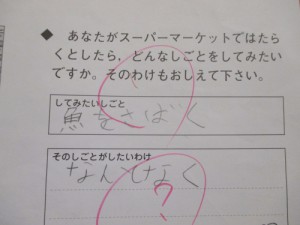 ◆ あなたがスーパーマーケットではたら
くとしたら、どんなしごとをしてみたい
ですか。そのわけもおしえて下さい。
してみたいしごと
魚をさばく
そのしごとがしたいわけ
なんとなく
?